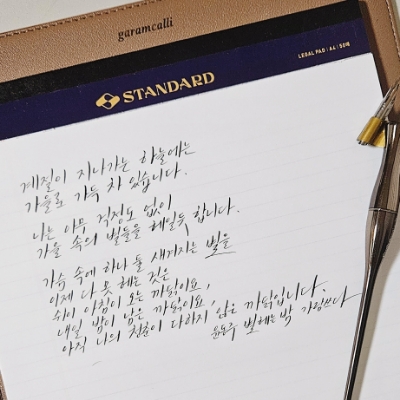 garamcalli
STANDARD
LEGAL PAD | A4 | 50M
계절이 지나가는 하늘에는
가을로 가득 차 있습니다.
나는 아무 걱정도 없이
가을 속의 별들을 헤일 듯 합니다.
가슴 속에 하나 둘 새겨지는 별을
이제 다 못 헤는 것은
쉬이 아침이 오는 까닭이요,
내일 밤이 남은 까닭이요,
아직 나의 청춘이 다하지 않은 까닭입니다.
윤동주 별헤는 밤 가람쓰다